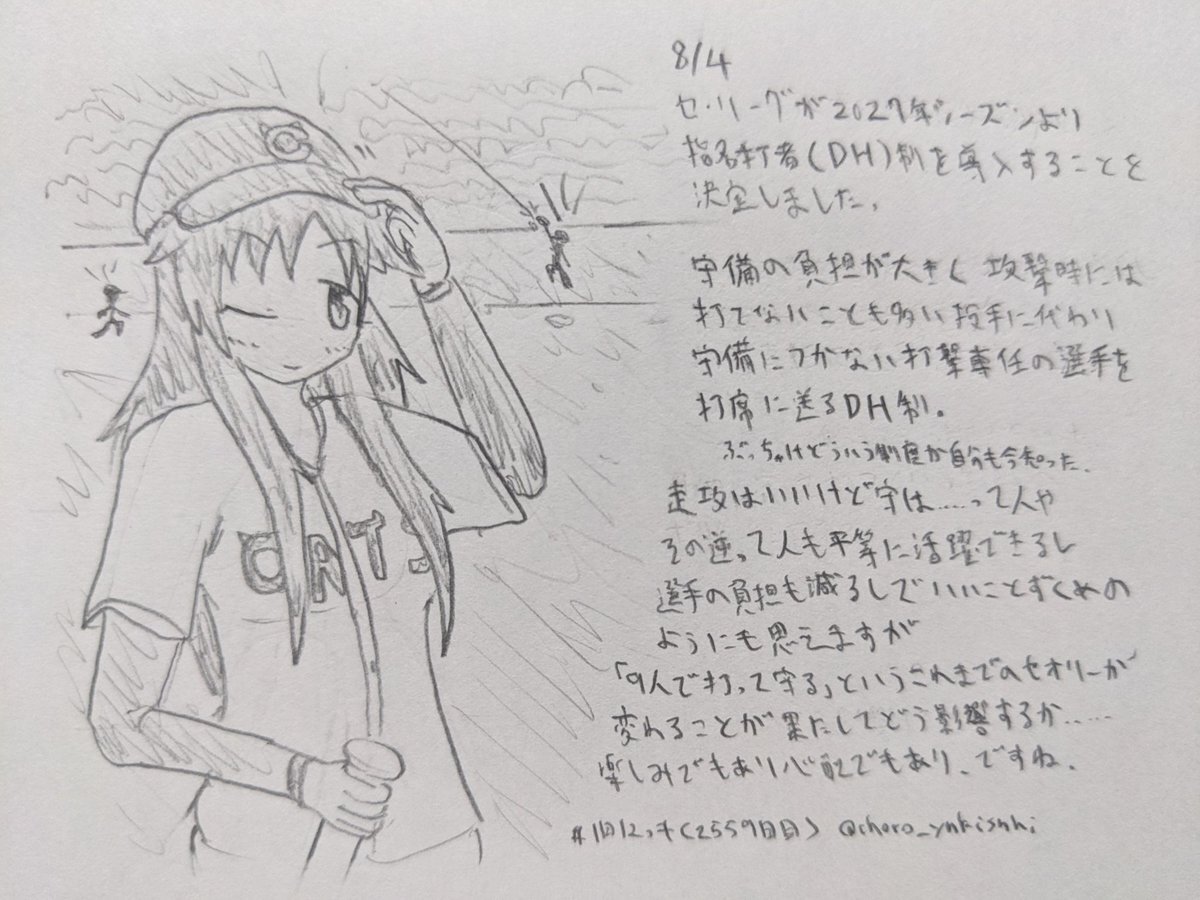 8/4
セ・リーグが2027年シーズンより
指名打者(DH)制を導入することを
決定しました。
守備の負担が大きく 攻撃時には
打てないことも多い投手に代わり
守備につかない打撃専任の選手を
打席に送るDH制。
ぶっちゃけどういう制度か自分も今知った。
走攻はいいけど守は……って人や
その逆って人も平等に活躍できるし
選手の負担も減るしでいいことずくめの
ようにも思えますが
「9人で打って守る」というこれまでのセオリーが
変わることが果たしてどう影響するか……
楽しみでもあり心配でもあり、ですね。
#1日1にっキ(2559日目) @choro_yukishiki
CATS
C